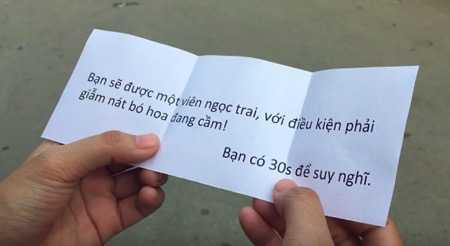 Bạn sẽ được một viên ngọc trai, với điều kiện phải
giẫm nát bó hoa đang cầm!
Bạn có 30s để suy nghĩ.